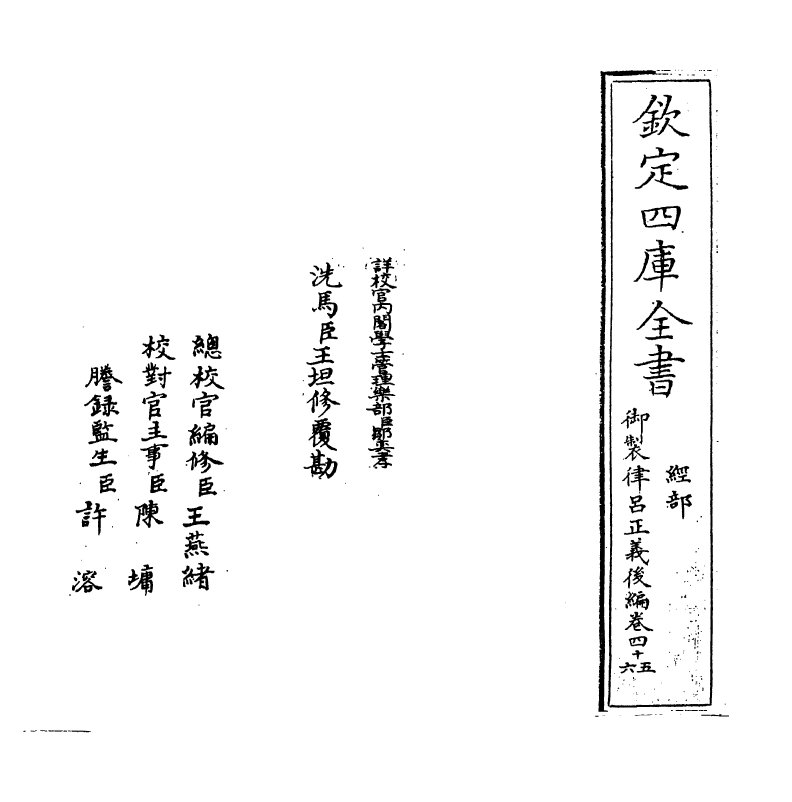 欽定四庫全書
經部
御製律呂正義後編卷四十五六
詳校官內閣學士管理樂部臣鄒奕孝
洗馬臣王坦修覆勘
總校官編修臣王燕緒
校對官主事臣陳墉
謄錄監生臣許溶